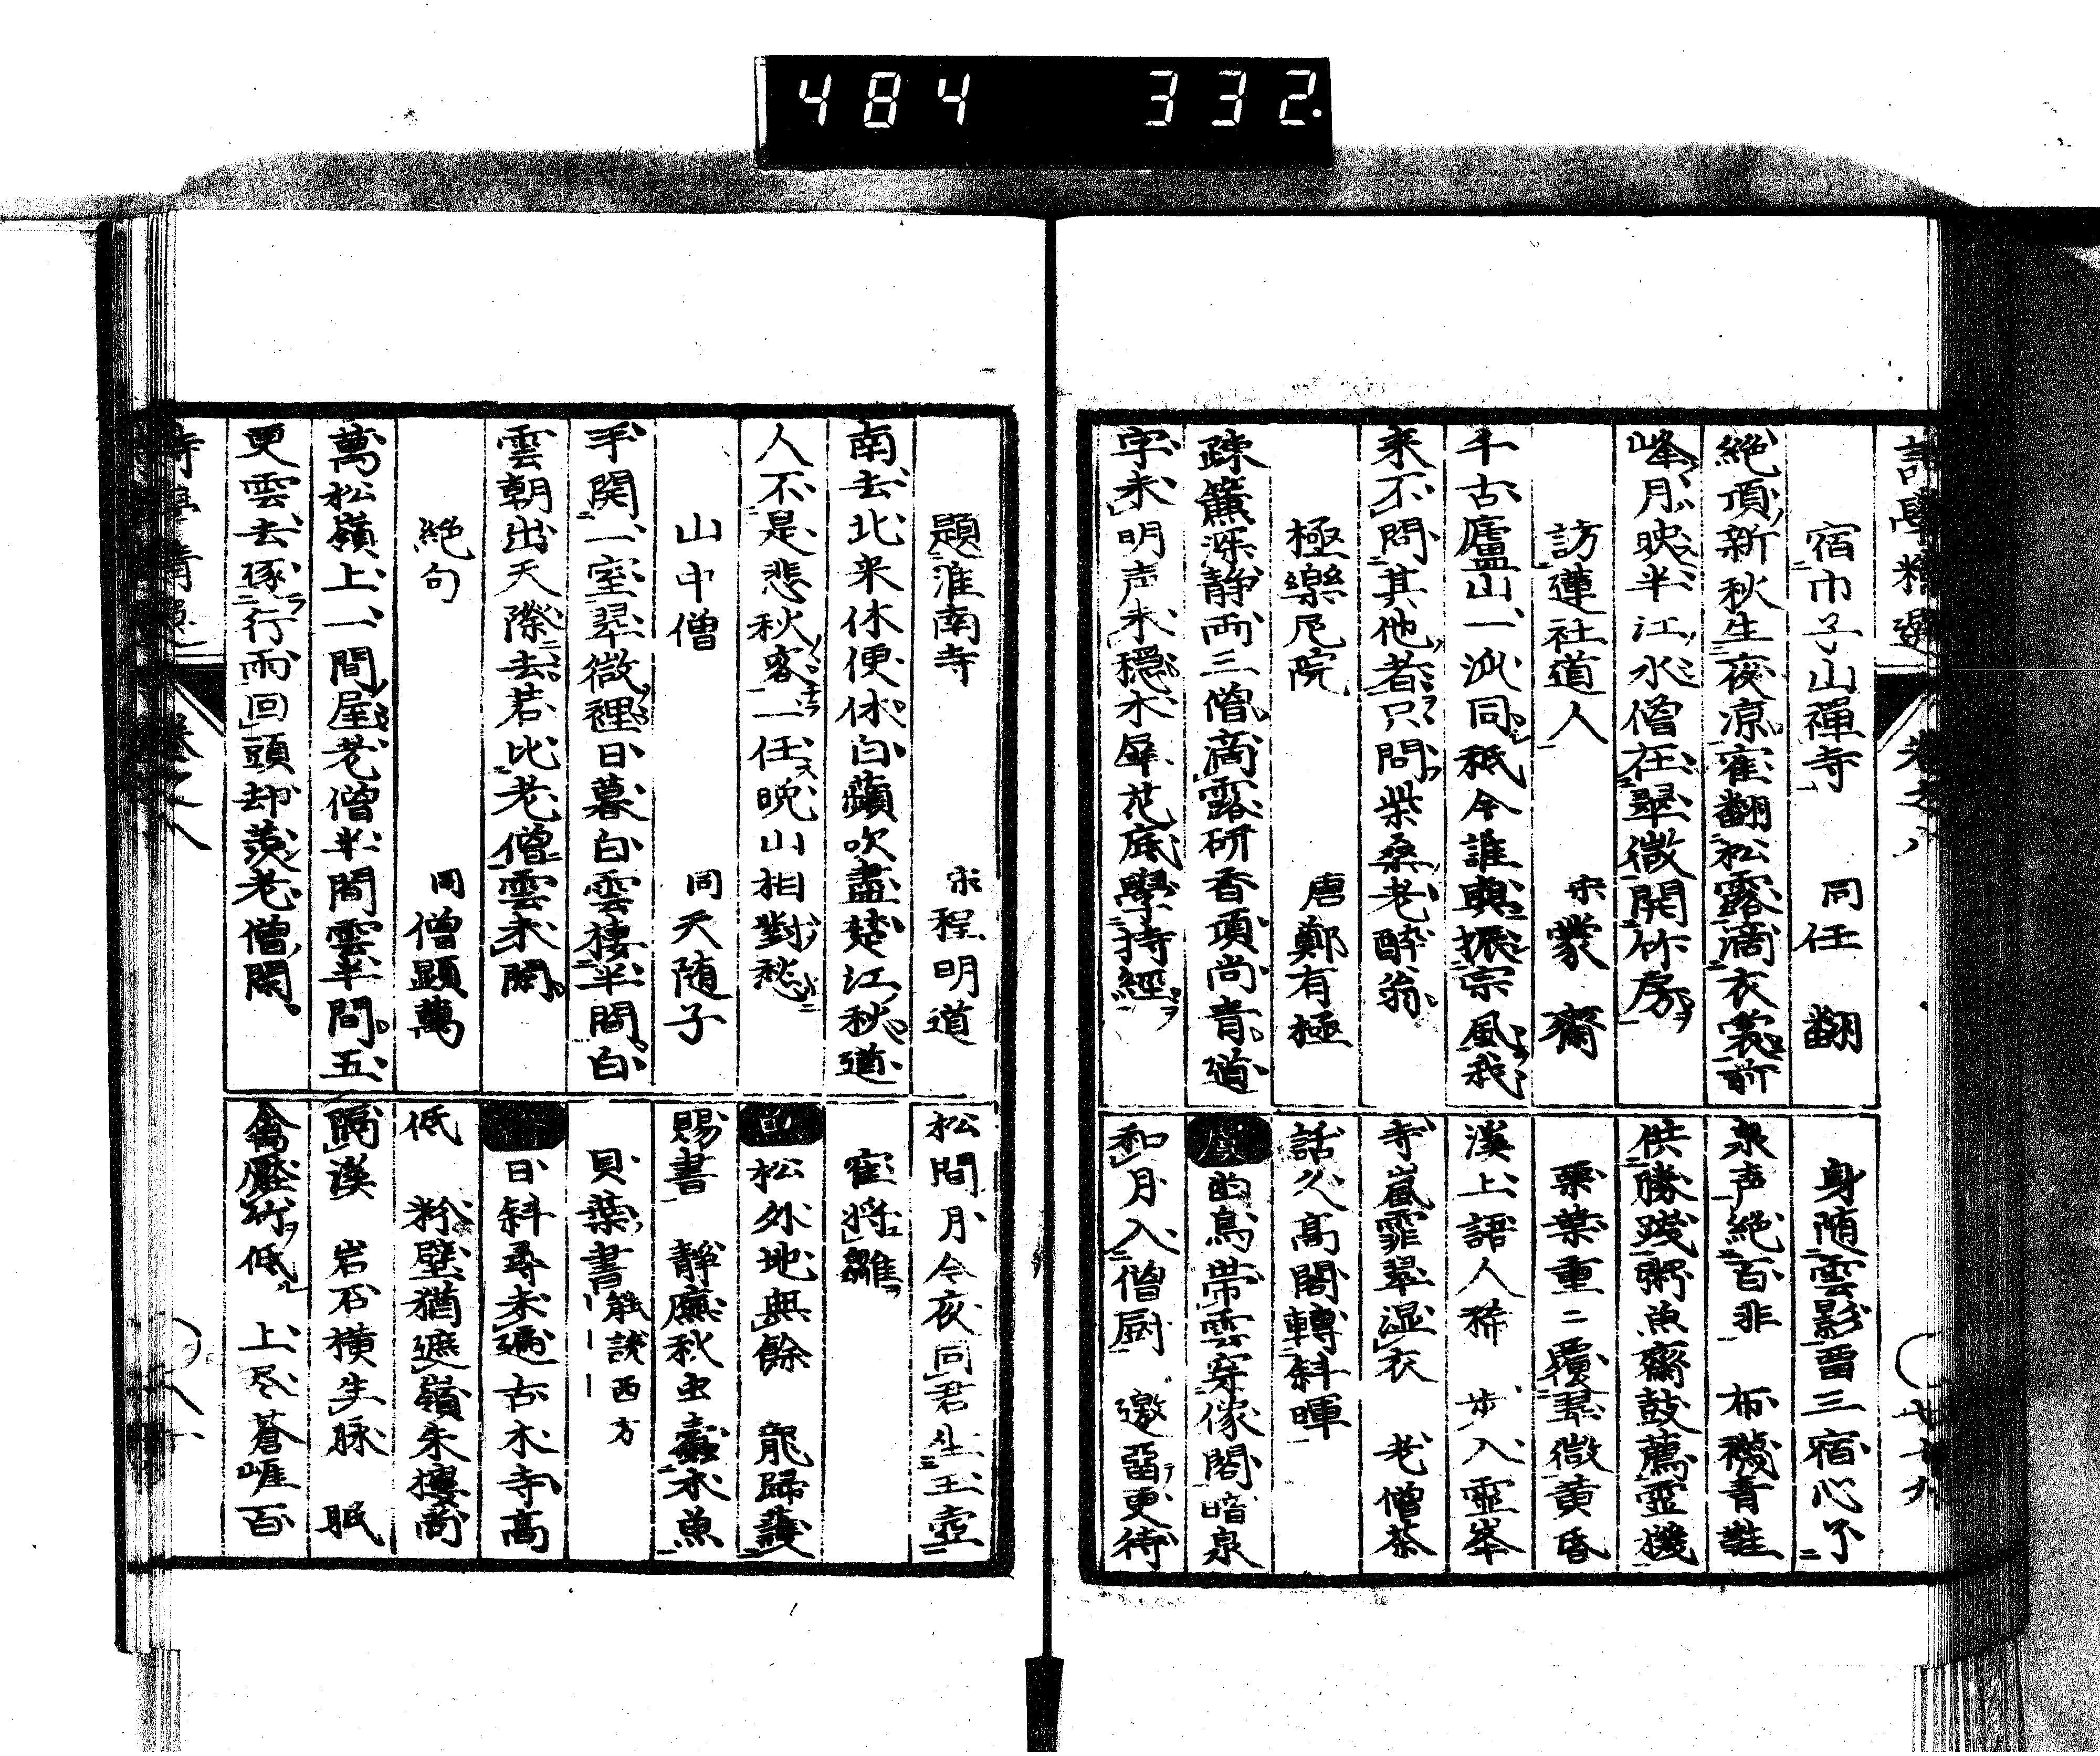 484 332.
詩學精選 卷之八
宿巾子山禪寺 同任翻
絶頂新秋生夜凉寉翻松露滴衣裳前
峰月映半江水僧在翠微開竹房
訪蓮社道人 宋蒙齋
千古廬山一派同秖今誰與振宗風我
来不問其他者只問柴桑老醉翁
極樂尼院 唐鄭有極
疎簾深静両三僧滴露研香頂尚青道
字未明声未穏水屏花底學持經
身随雲影畱三宿心与
泉声絶百非 布襪青鞋
供勝踐粥魚齋鼓薦霊機
栗葉重二覆翠微黄昏
溪上語人稀 歩入霊峯
寺嵐霏翠湿衣 老僧茶
話久高閣轉斜暉
鳥帯雲穿像閣暗泉
和月入僧厨 邀畱更待
題淮南寺 宋程明道
南去北来休便休白蘋吹盡楚江秋道
人不是悲秋客一任晩山相對愁
山中僧 同天随子
手関一室翠微裡日暮白雲棲半間白
雲朝出天際去若比老僧雲未閑
絶句 同僧顕萬
萬松嶺上一間屋老僧半間雲半間五
更雲去琢行雨回頭却羨老僧閑
松間月今夜同君坐玉壺
寉将雛
松外地無餘 龍歸護
賜書 静廡秋虫蠧木魚
貝葉書觧談西方
日斜尋未遍古木寺高
低 粉壁猶遮嶺朱樓尚
隔溪 岩石横生脉 眠
禽壓竹低 上尽蒼崖百
卷之八